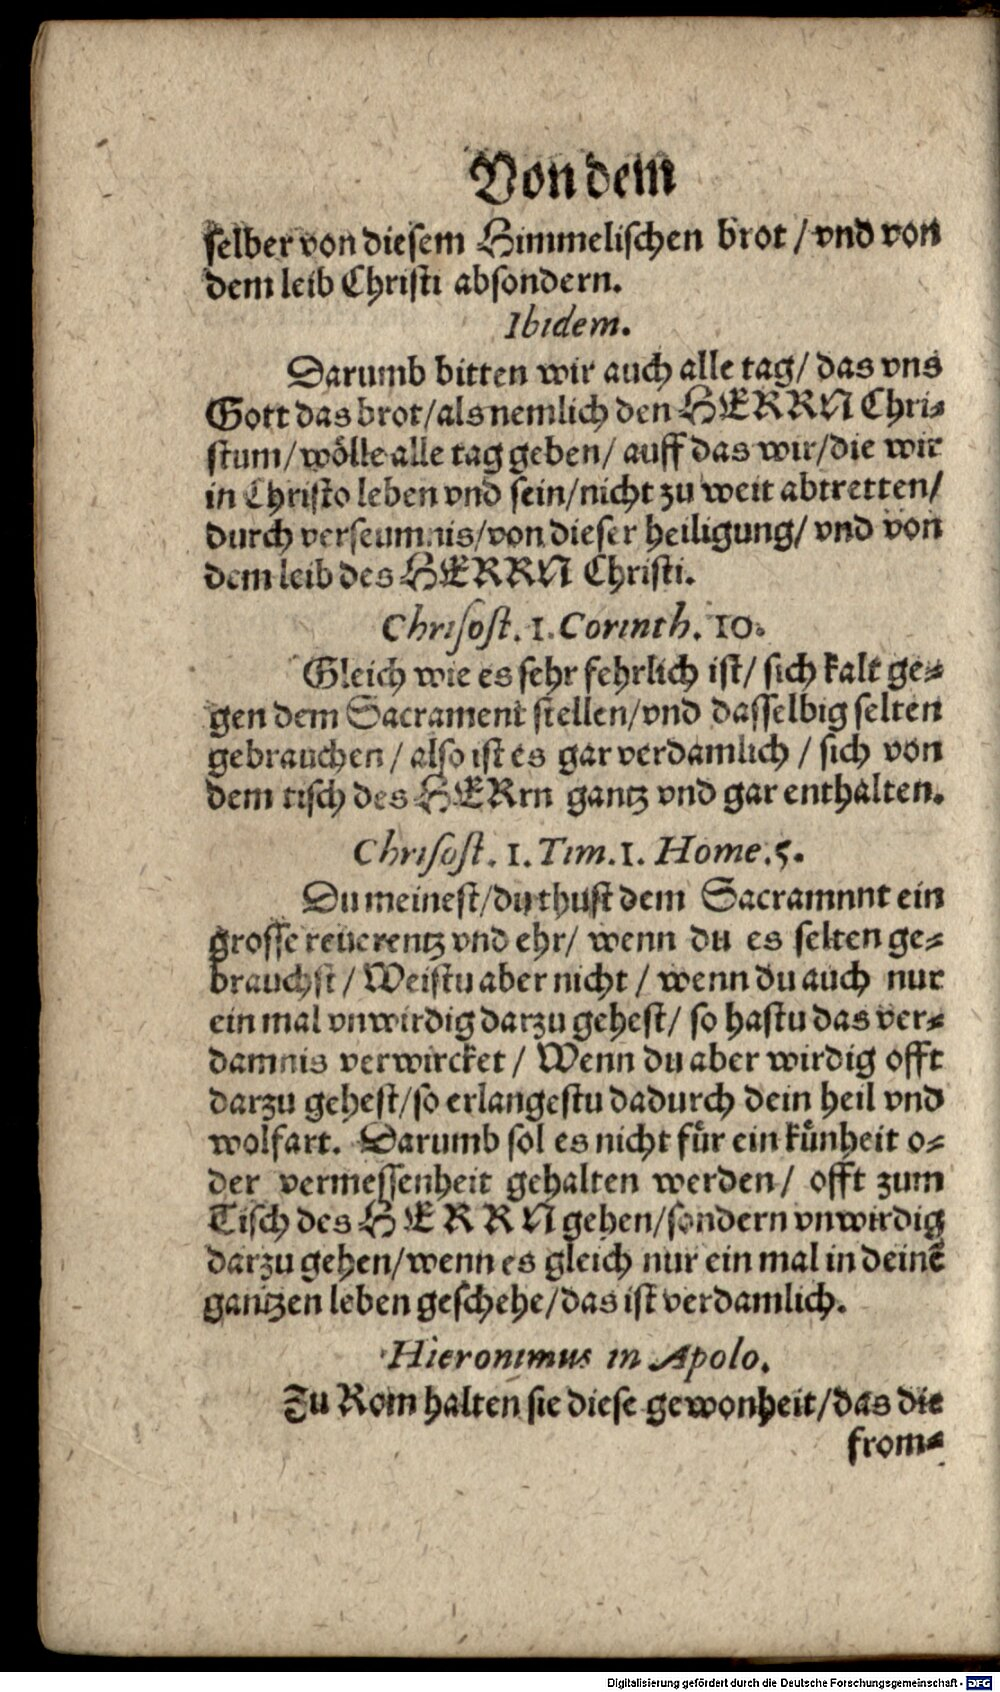 Von dem
selber von diesem Himmelischen brot / vnd von
dem leib Christi absondern.
Ibidem.
Darumb bitten wir auch alle tag / das vns
Gott das brot / als nemlich den HERRN Chri-
stum / wölle alle tag geben / auff das wir / die wir
in Christo leben vnd sein / nicht zu weit abtretten /
durch verseumnis / von dieser heiligung / vnd von
dem leib des HERRN Christi.
Chrisost. 1. Corinth. 10.
Gleich wie es sehr fehrlich ist / sich kalt ge-
gen dem Sacrament stellen / vnd dasselbig selten
gebrauchen / also ist es gar verdamlich / sich von
dem tisch des HERrn gantz vnd gar enthalten.
Chrisost. 1. Tim. 1. Home. 5.
Du meinest / du thust dem Sacramnnt ein
grosse reuerentz vnd ehr / wenn du es selten ge-
brauchst / Weistu aber nicht / wenn du auch nur
ein mal vnwirdig darzu gehest / so hastu das ver-
damnis verwircket / Wenn du aber wirdig offt
darzu gehest / so erlangestu dadurch dein heil vnd
wolfart. Darumb sol es nicht für ein künheit o-
der vermessenheit gehalten werden / offt zum
Tisch des HERRN gehen / sondern vnwirdig
darzu gehen / wenn es gleich nur ein mal in deinẽ
gantzen leben geschehe / das ist verdamlich.
Hieronimus in Apolo.
Zu Rom halten sie diese gewonheit / das die
from-
Digitalisierung gefördert durch die Deutsche Forschungsgemeinschaft - DFG